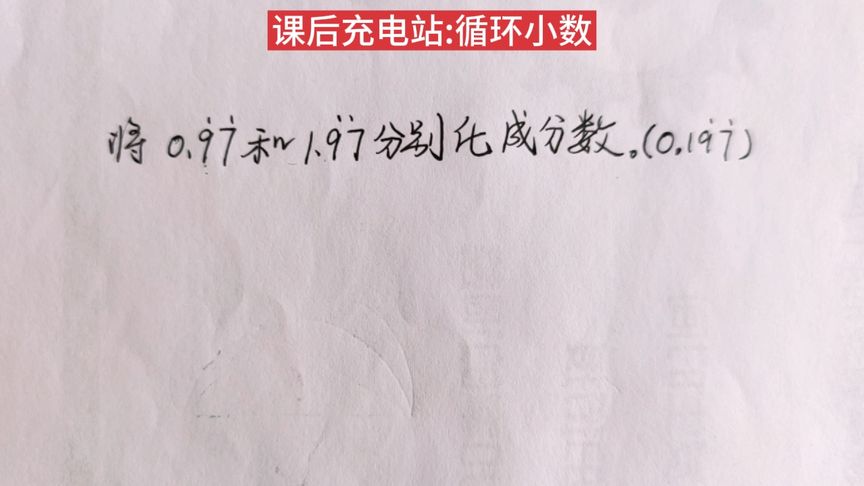 课后充电站:循环小数
将 0.9̇7̇ 和 1.9̇7̇ 分别化成分数。(0.19̇7̇)